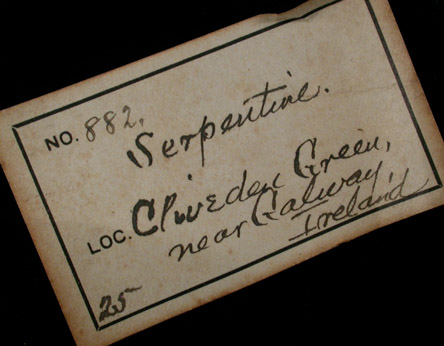 NO. 882.
Serpentine.
LOC. Cliveden Green,
near Galway,
Ireland
25